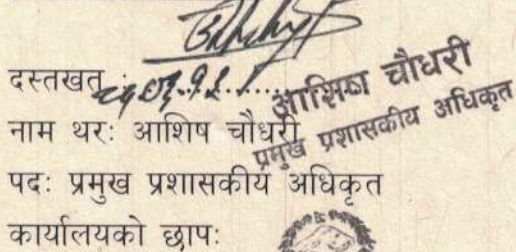 दस्तखत :....................
आशिष चौधरी
प्रमुख प्रशासकीय अधिकृत
नाम थरः आशिष चौधरी
पदः प्रमुख प्रशासकीय अधिकृत
कार्यालयको छापः